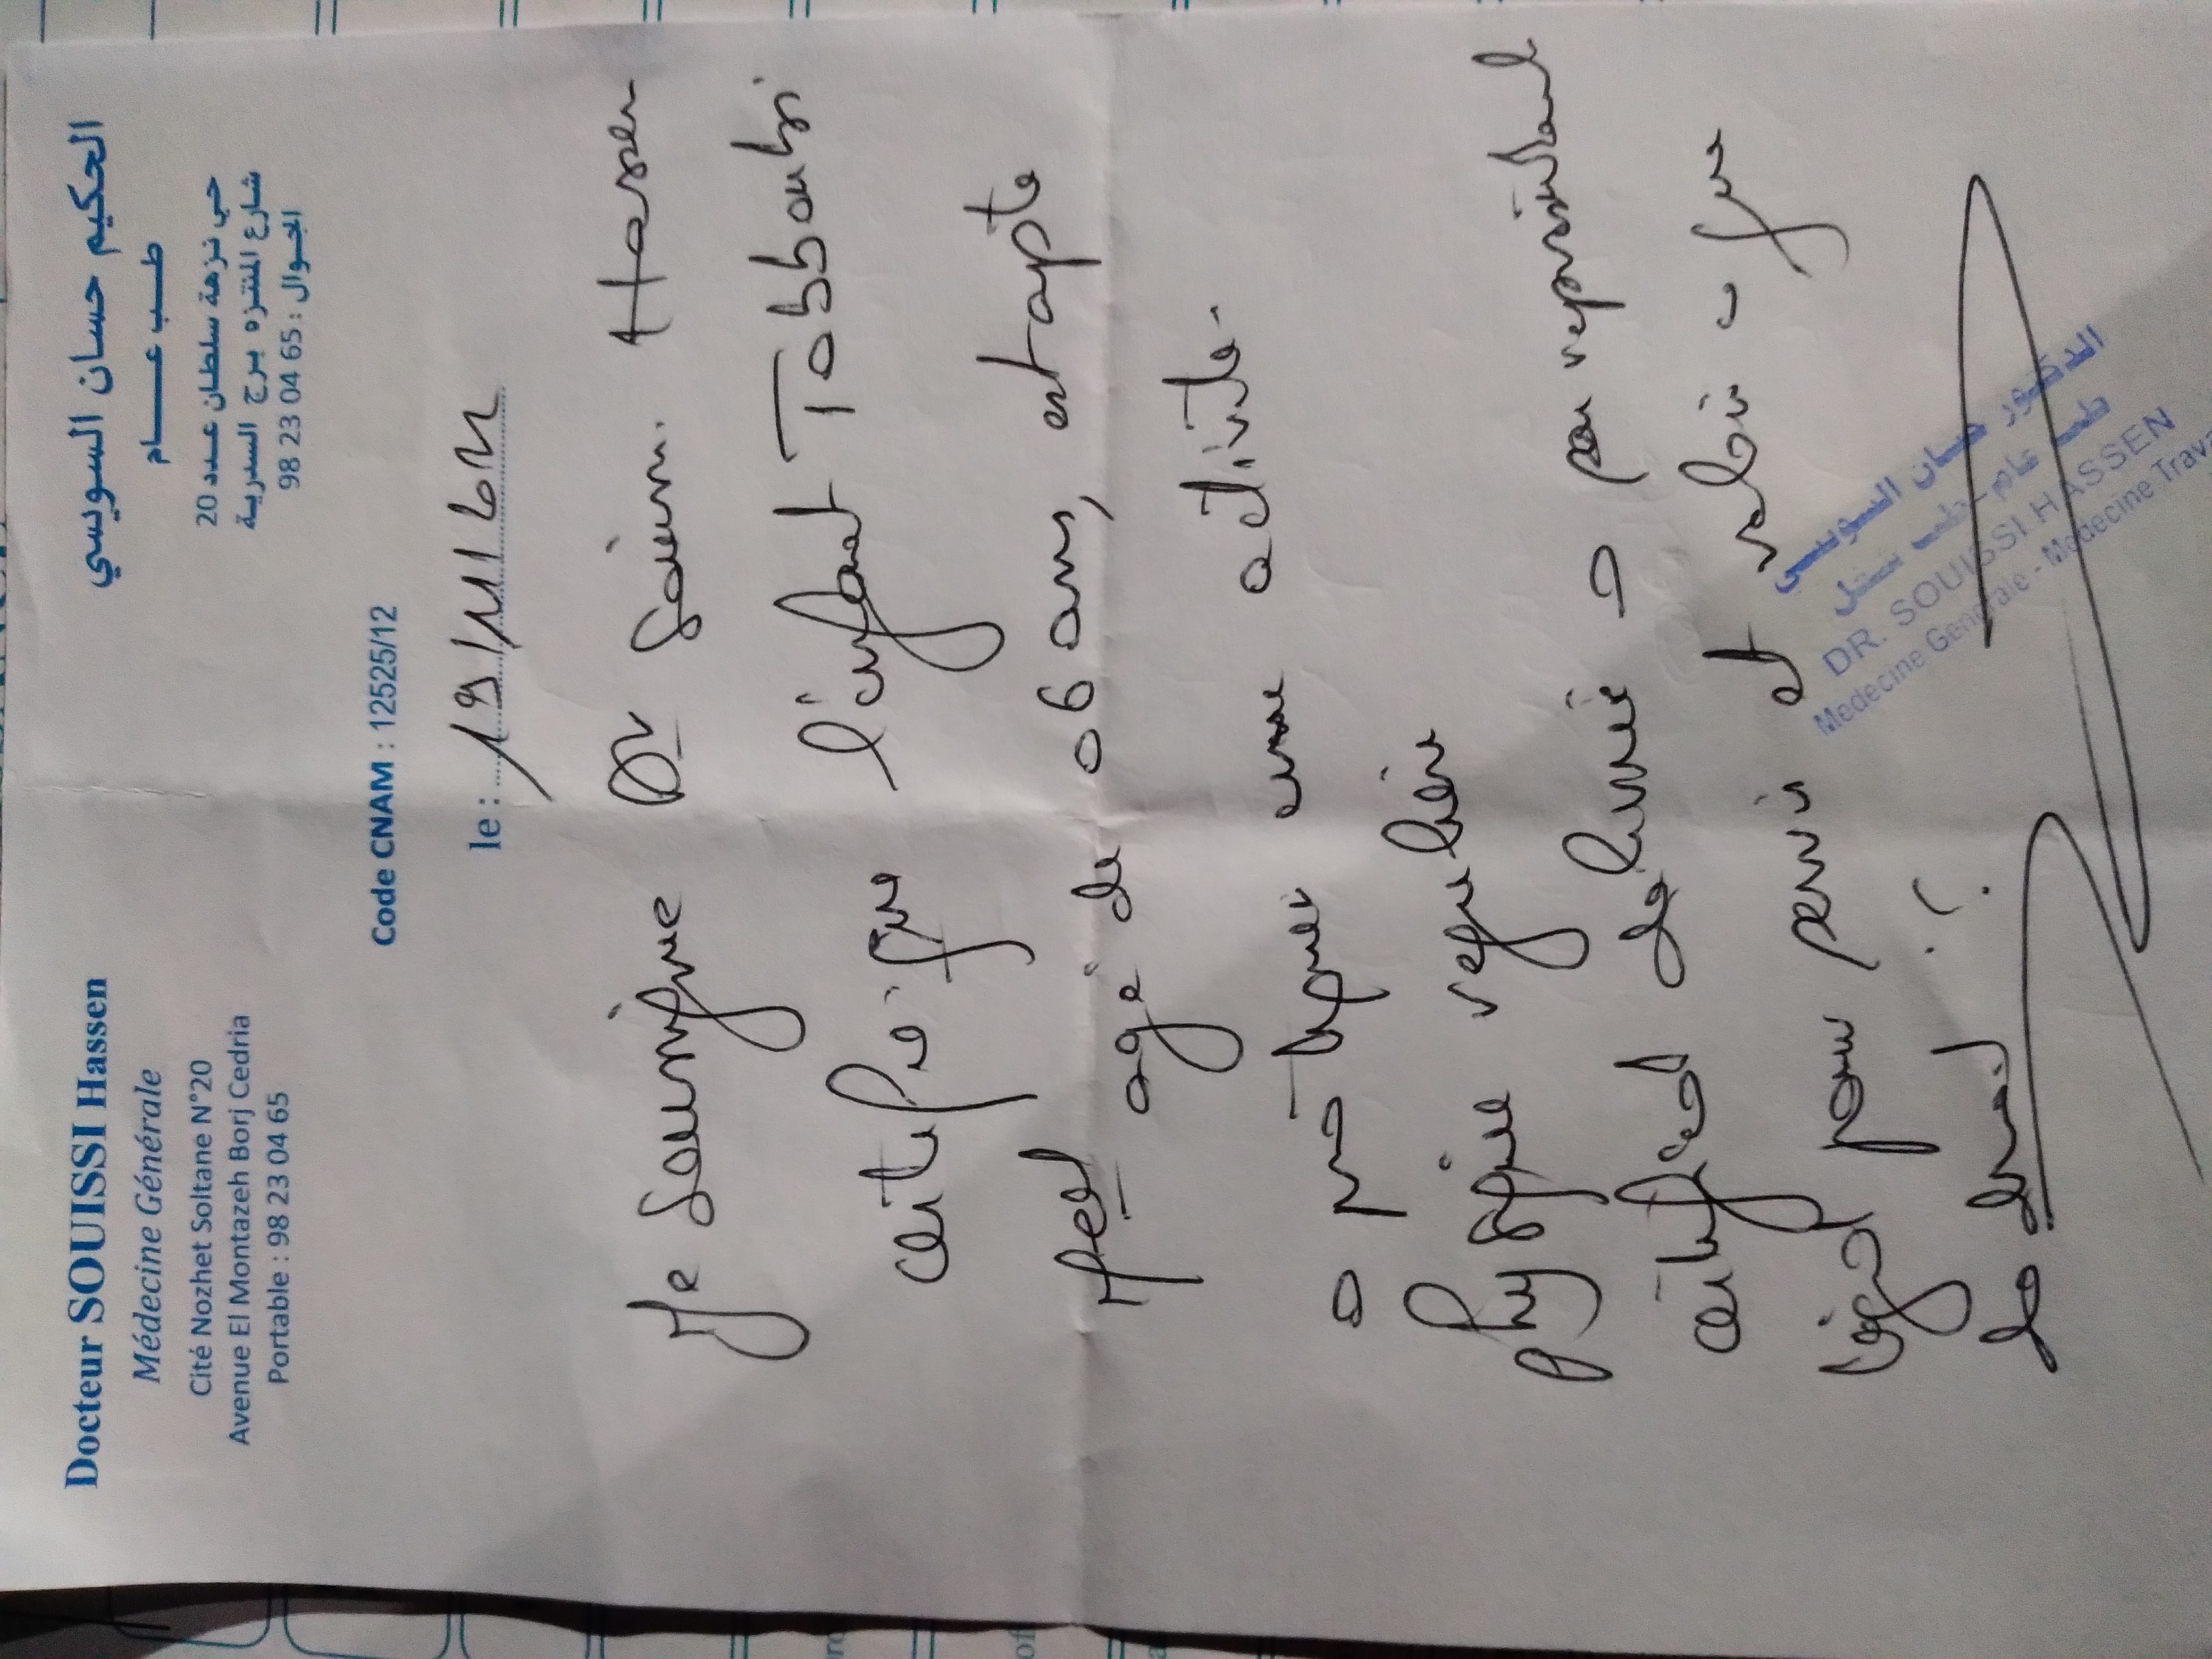 Docteur SOUISSI Hassen
Médecine Générale
Cité Nozhet Soltane N°20
Avenue El Montazeh Borj Cedria
Portable : 98 23 04 65
الحكيم حسان السويسي
طب عام
حي نزهة سلطان عدد 20
شارع المنتزه برج السدرية
الجوال : 65 04 23 98
Code CNAM : 12525/12
le :
Je soussigné Dr Souissi Hassen
certifie que l'enfant Tabboubi
agé de 06 ans, est apte
à pratiquer une activité
physique régulière
certificat delivré à son représentant
légal pour servir et valoir ce que
de droit
الدكتور حسان السويسي
DR. SOUISSI HASSEN
Medecine Generale - Medecine